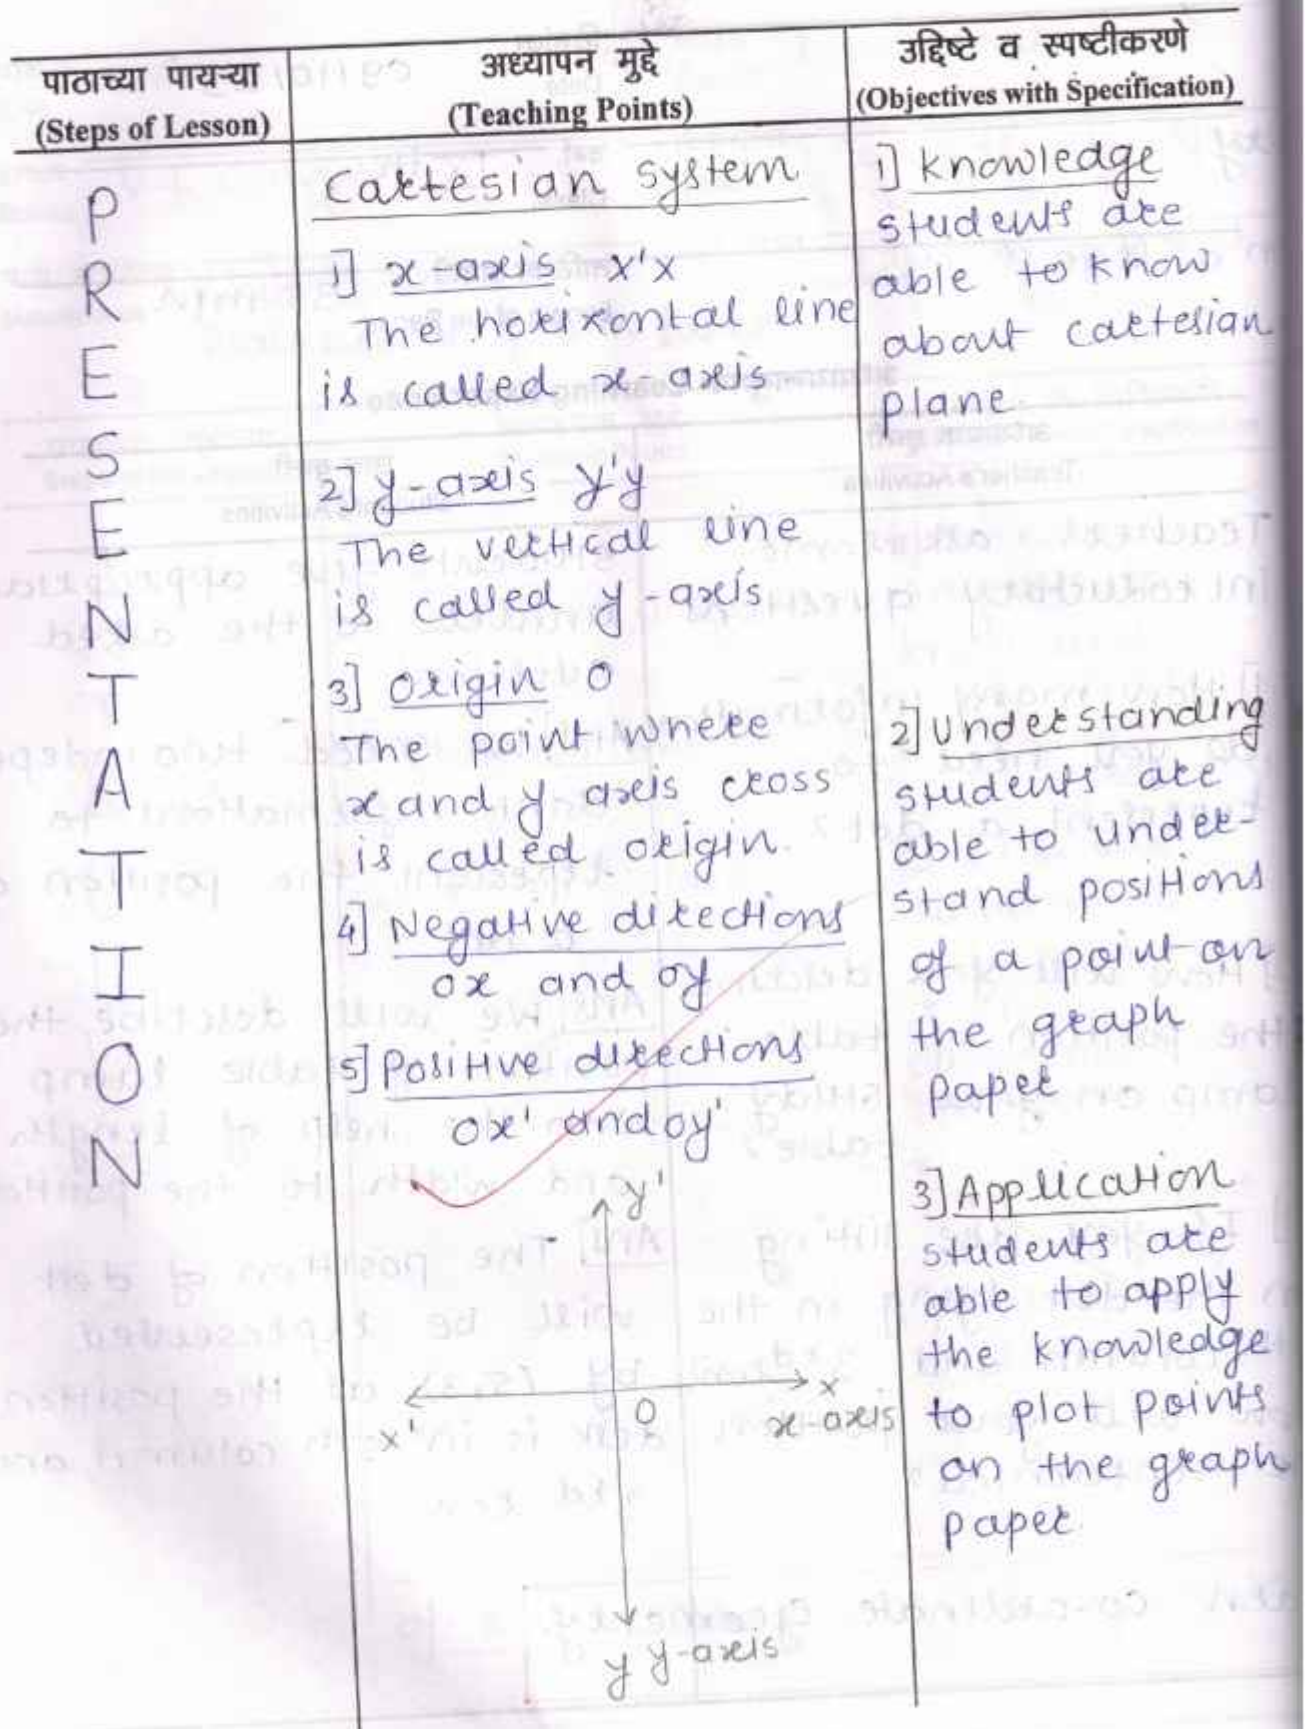 पाठाच्या पायऱ्या
(Steps of Lesson)
अध्यापन मुद्दे
(Teaching Points)
उद्दिष्टे व स्पष्टीकरणे
(Objectives with Specification)
P
R
E
S
E
N
T
A
T
I
O
N
Cartesian system
1] x-axis x'x
The horizontal line
is called x-axis
2] y-axis y'y
The vertical line
is called y-axis
3] Origin O
The point where
x and y axis cross
is called origin.
4] Negative directions
ox and oy
5] Positive directions
ox' and oy'
y'
x
O
x-axis
x'
y y-axis
1] Knowledge
students are
able to know
about cartesian
plane.
2] Understanding
students are
able to under-
stand positions
of a point on
the graph
paper
3] Application
students are
able to apply
the knowledge
to plot points
on the graph
paper.